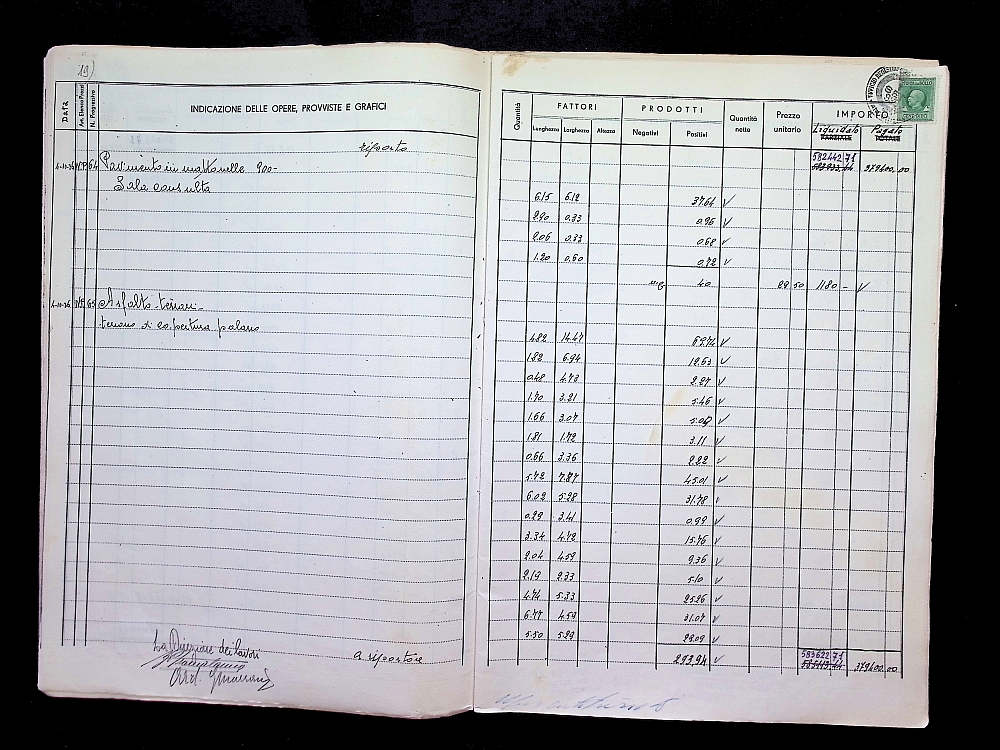 19)
Data
Art. Elenco Prezzi
N. Progressivo
INDICAZIONE DELLE OPERE, PROVVISTE E GRAFICI
riporto
64 Pavimento in mattonelle 900-
Sala consulta
65 Asfalto terrari-
terrano di copertura palano
La Direzione dei lavori
a riportare
Quantità
FATTORI
Lunghezza Larghezza Altezza
PRODOTTI
Negativi Positivi
Quantità nette
Prezzo unitario
IMPORTO
Liquidato Pagato
PARZIALE TOTALE
582442,71
379400,00
6.15 6.12 37.64 V
2.90 0.33 0.96 V
2.06 0.33 0.68 V
1.20 0.60 0.72 V
mq 40 29 50 1180 - V
4.82 14.47 69.74 V
1.82 6.94 12.63 V
0.48 4.73 2.27 V
1.70 3.21 5.46 V
1.66 3.07 5.09 V
1.81 1.72 3.11 V
0.66 3.36 2.22 V
5.72 7.87 45.01 V
6.02 5.28 31.78 V
0.29 3.41 0.99 V
3.34 4.72 15.76 V
2.04 4.59 9.36 V
2.19 2.33 5.10 V
4.74 5.33 25.26 V
6.77 4.59 31.07 V
5.50 5.29 29.09 V
293.94 V
583622,71
379400,00